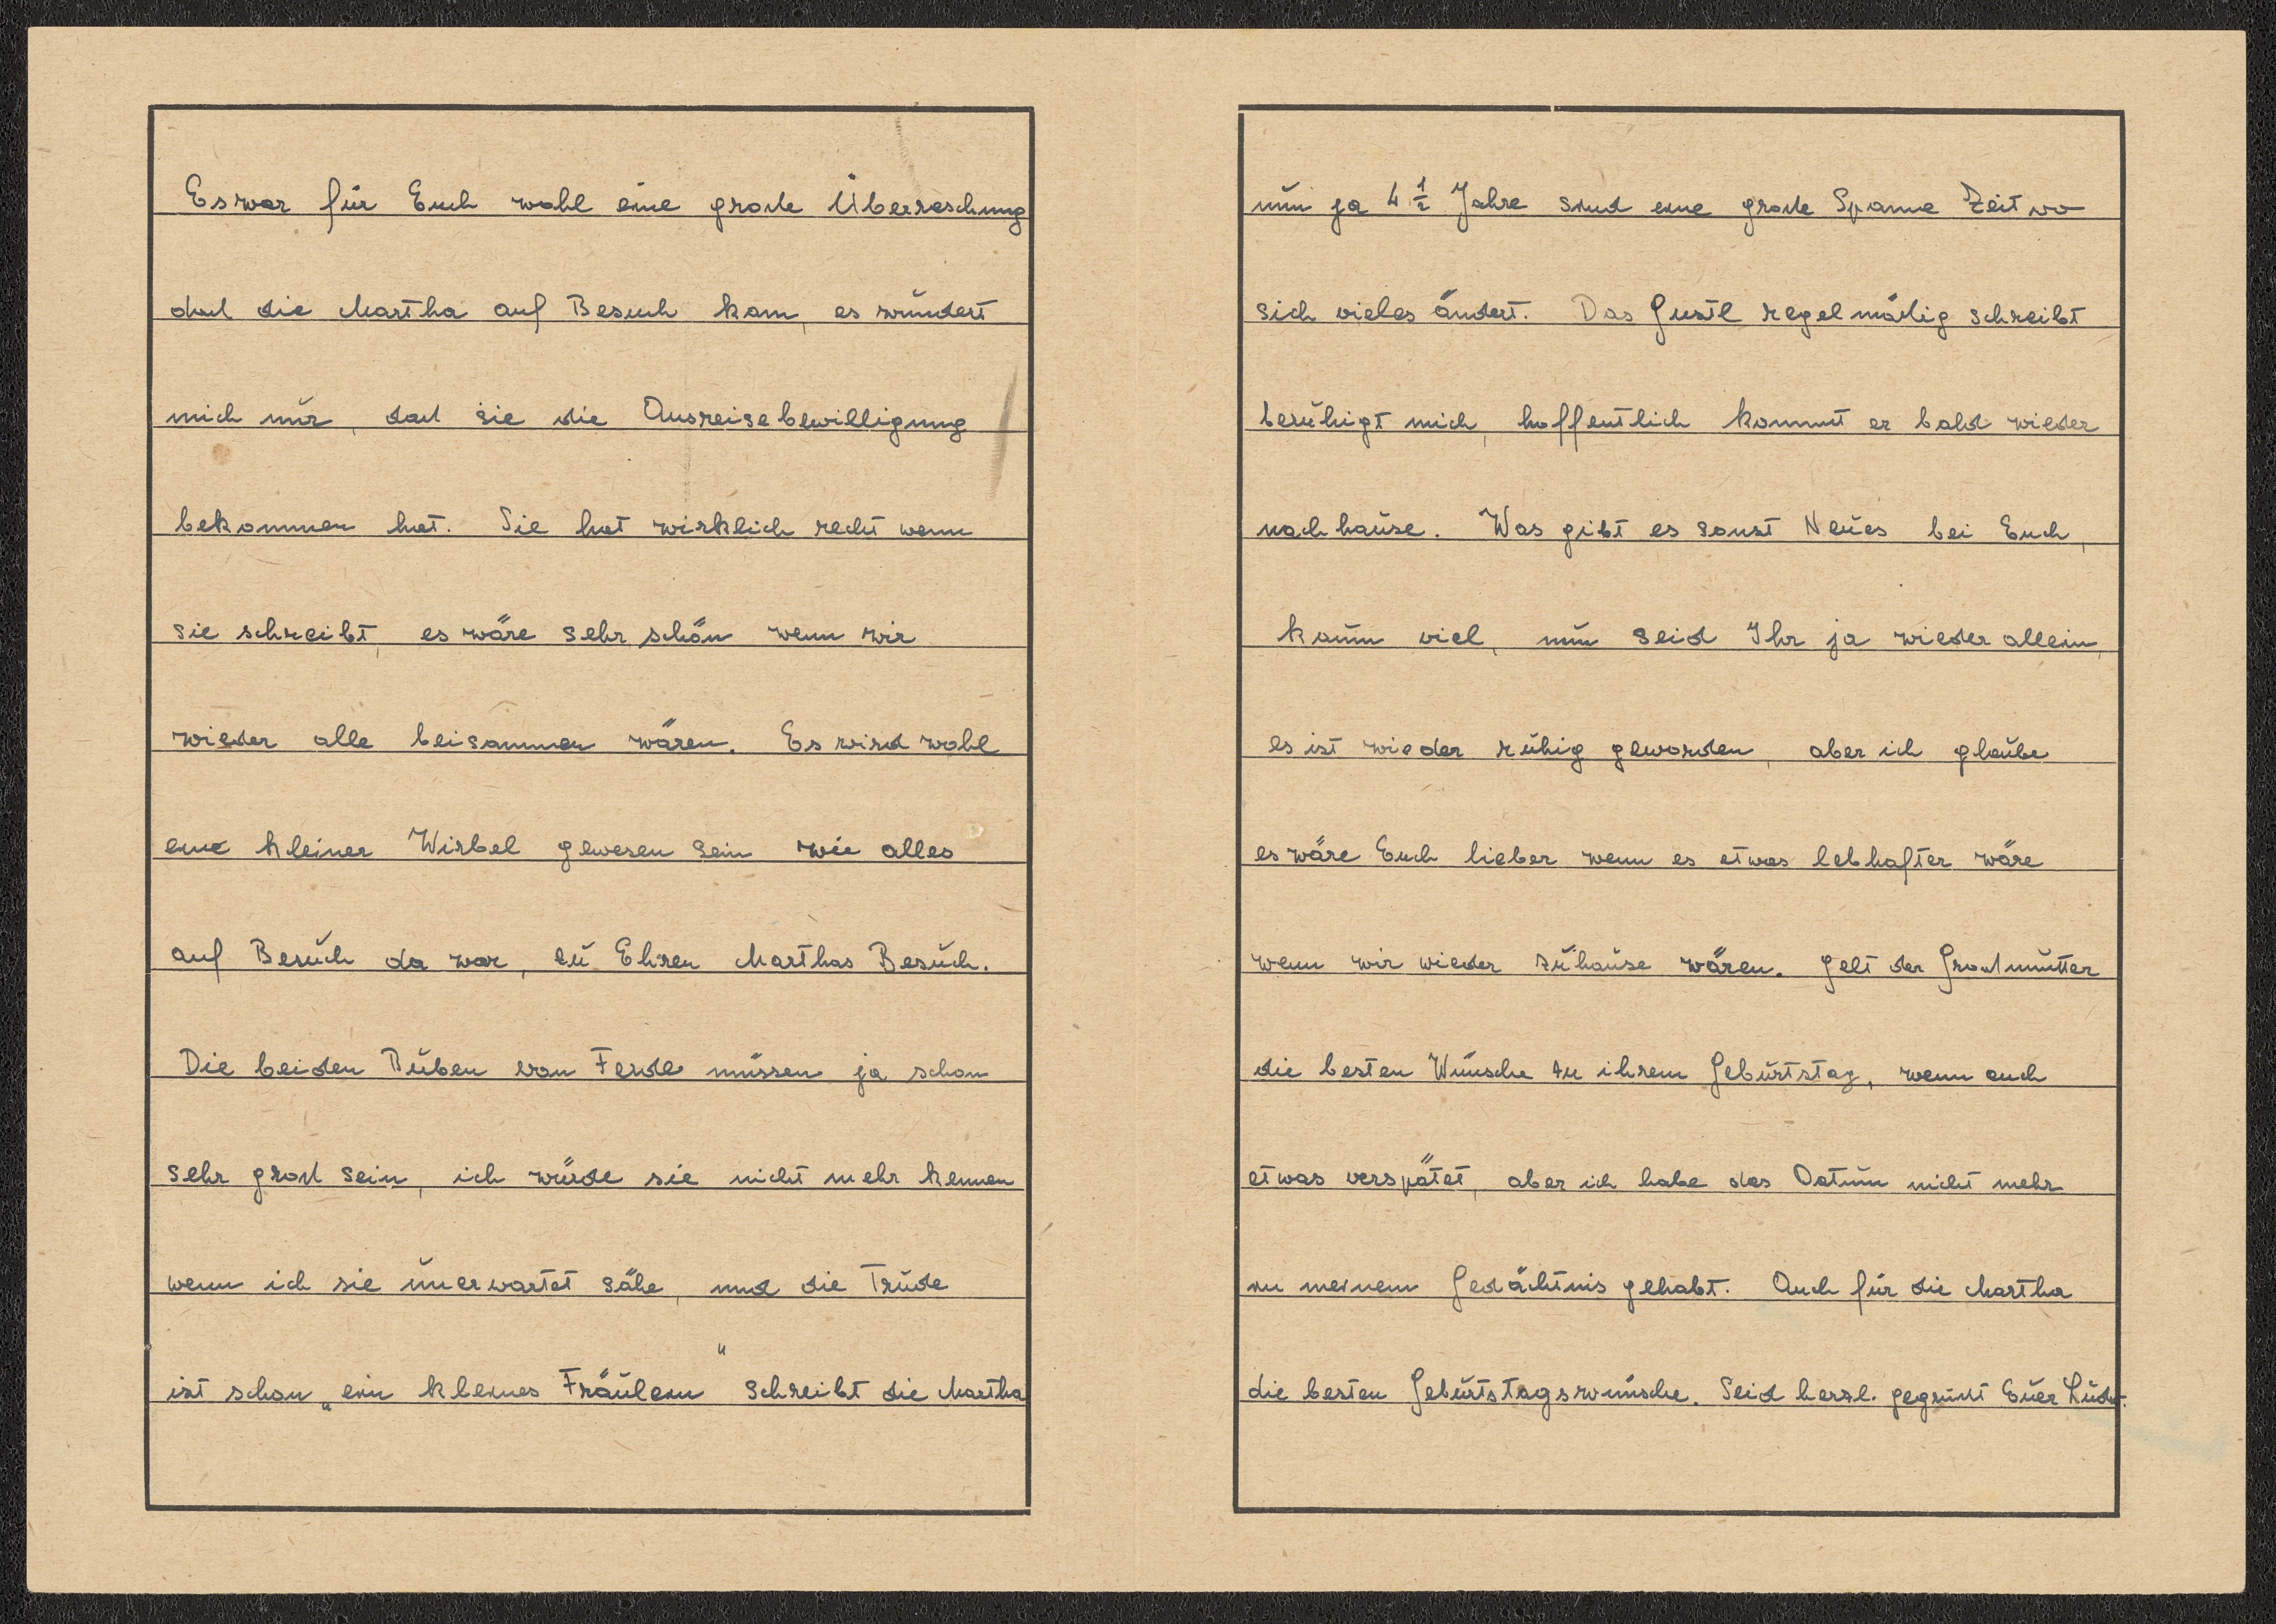 Es war für Euch wohl eine große Überraschung
daß die Martha auf Besuch kam, es wundert
mich nur, daß sie die Ausreisebewilligung
bekommen hat. Sie hat wirklich recht wenn
sie schreibt, es wäre sehr schön wenn wir
wieder alle beisammen wären. Es wird wohl
ein kleiner Wirbel gewesen sein wie alles
auf Besuch da war, zu Ehren Marthas Besuch.
Die beiden Buben von Ferdl müssen ja schon
sehr groß sein, ich würde sie nicht mehr kennen
wenn ich sie unerwartet sähe, und die Trude
ist schon „ein kleines Fräulein" schreibt die Martha
nun ja 4 1/2 Jahre sind eine große Spanne Zeit wo
sich vieles ändert. Das Gustl regelmäßig schreibt
beruhigt mich, hoffentlich kommt er bald wieder
nachhause. Was gibt es sonst Neues bei Euch,
kaum viel, nun seid Ihr ja wieder allein,
es ist wieder ruhig geworden, aber ich glaube
es wäre Euch lieber wenn es etwas lebhafter wäre
wenn wir wieder zuhause wären. Gelt der Großmutter
die besten Wünsche zu ihrem Geburtstag, wenn auch
etwas verspätet, aber ich habe das Datum nicht mehr
in meinem Gedächtnis gehabt. Auch für die Martha
die besten Geburtstagswünsche. Seid herzl. gegrüßt Euer